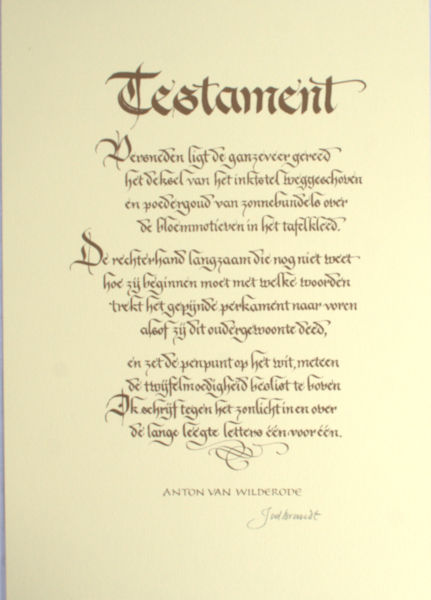 Testament
Versneden ligt de ganzeveer gereed
het deksel van het inktstel weggeschoven
en poedergoud van zonnebundels over
de bloemmotieven in het tafelkleed.
De rechterhand langzaam die nog niet weet
hoe zij beginnen moet met welke woorden
trekt het gepijnde perkament naar voren
alsof zij dit oudergewoonte deed,
en zet de penpunt op het wit, meteen
de twijfelmoedigheid beslist te boven
Ik schrijf tegen het zonlicht in en over
de lange leegte letters één voor één.
ANTON VAN WILDERODE